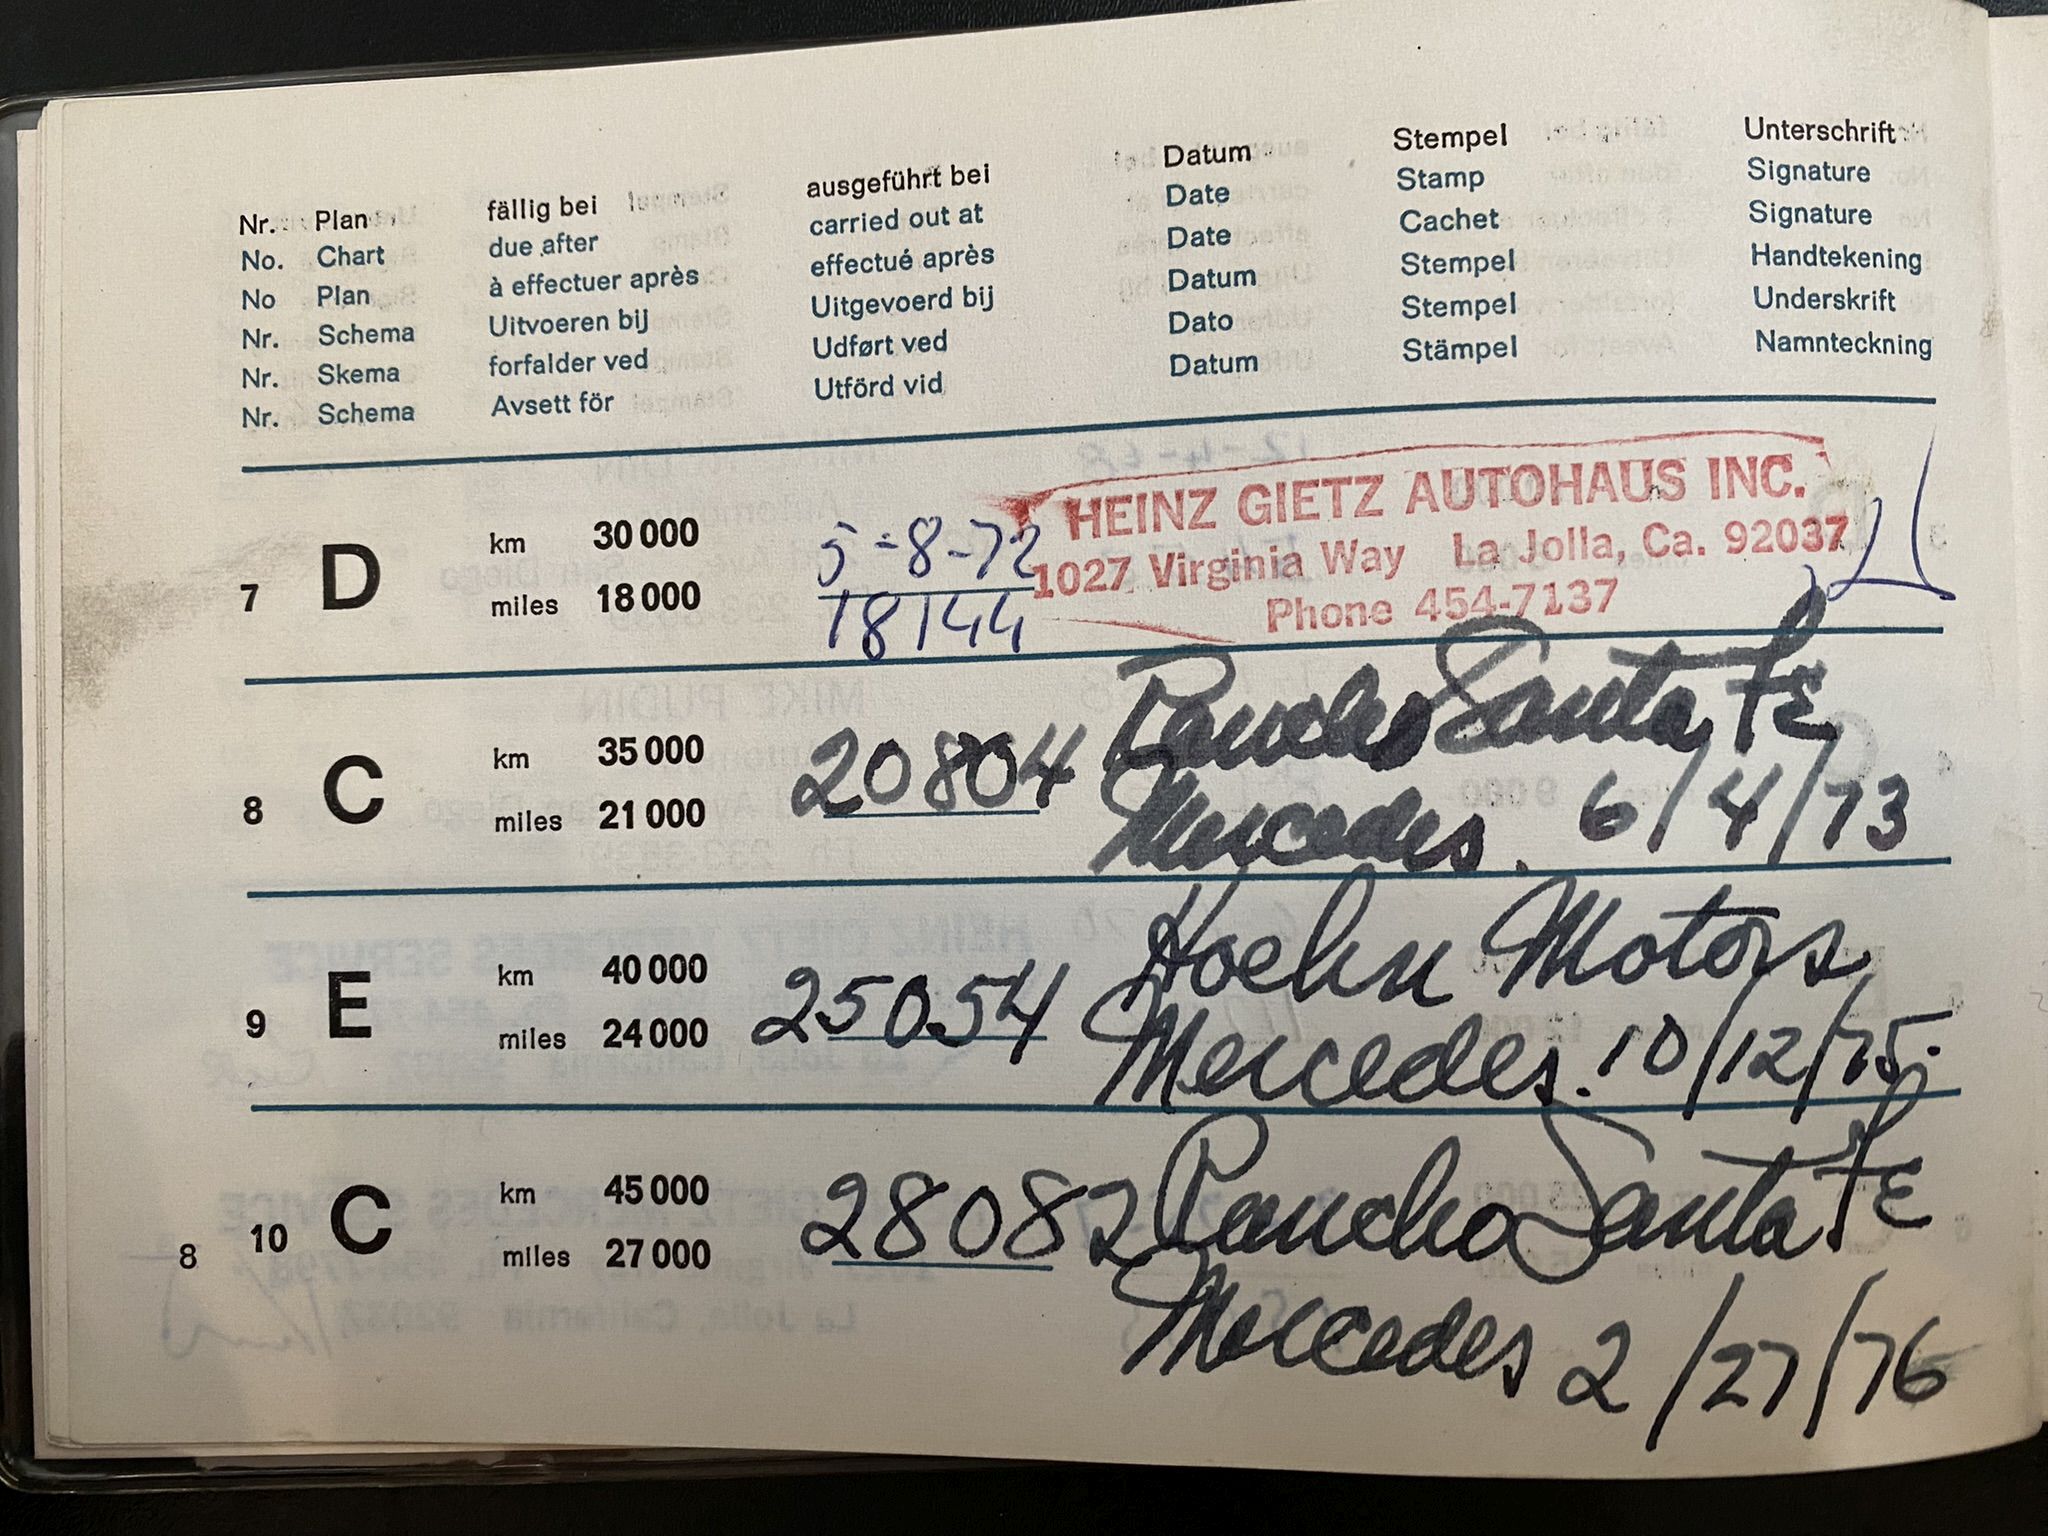 Nr. Plan fällig bei ausgeführt bei Datum Stempel Unterschrift
No. Chart due after carried out at Date Stamp Signature
No Plan à effectuer après effectué après Date Cachet Signature
Nr. Schema Uitvoeren bij Uitgevoerd bij Datum Stempel Handtekening
Nr. Skema forfalder ved Udført ved Dato Stempel Underskrift
Nr. Schema Avsett för Utförd vid Datum Stämpel Namnteckning
HEINZ GIETZ AUTOHAUS INC.
km 30 000 5-8-72
1027 Virginia Way La Jolla, Ca. 92037
7 D miles 18 000 18144
Phone 454-7137
km 35 000 Rancho Santa Fe
8 C miles 21 000 20804 Mercedes. 6/4/73
km 40 000 Hoehn Motors
9 E miles 24 000 25054 Mercedes. 10/12/75.
km 45 000 28082 Rancho Santa Fe
8 10 C miles 27 000 Mercedes 2/27/76